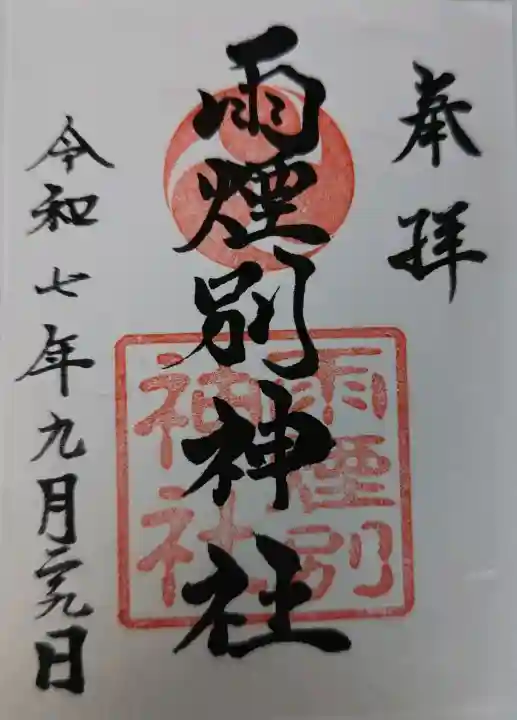 奉拝
雨煙別神社
雨煙別
神社
令和七年九月二十九日